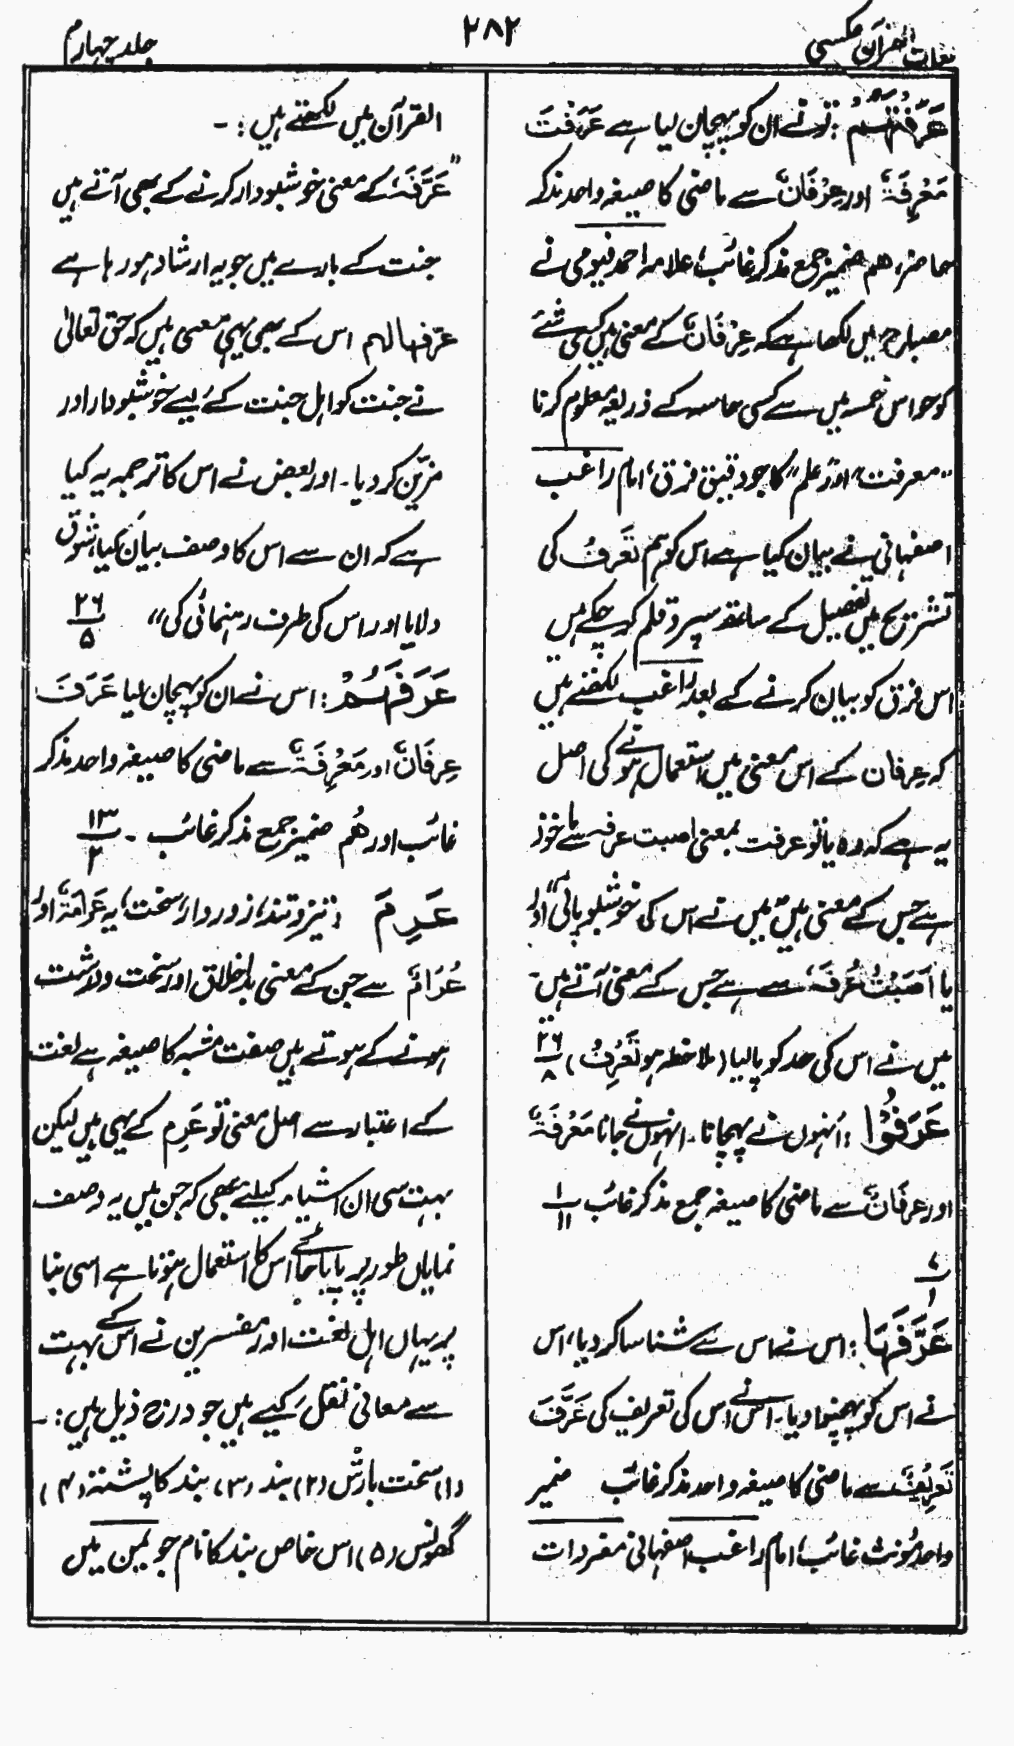 لغات القرآن عکسی
۲۸۲
جلد چہارم
عَرَفْتَهُمْ : تو نے ان کو پہچان لیا ہے عَرَفْتَ
مَعْرِفَةٌ اور عِرْفَانٌ سے ماضی کا صیغہ واحد مذکر
حاضر، ھم ضمیر جمع مذکر غائب، علامہ احمد فیومی نے
مصباح میں لکھا ہے کہ عِرْفَانٌ کے معنی ہیں کسی شئے
کو حواس خمسہ میں سے کسی حاسہ کے ذریعہ معلوم کرنا
"معرفت" اور "علم" کا جو دقیق فرق، امام راغب
اصفہانی نے بیان کیا ہے اس کو ہم تَعْرِفُ کی
تشریح میں تفصیل کے ساتھ سپرد قلم کر چکے ہیں
اس فرق کو بیان کرنے کے بعد راغب لکھتے ہیں
کہ عرفان کے اس معنی میں استعمال ہونے کی اصل
یہ ہے کہ وہ یا تو عرفت بمعنی اصبت عرفہ سے ماخوذ
ہے جس کے معنی ہیں "میں نے اس کی خوشبو پائی" اور
یا اَصَبْتُ عُرْفَهُ سے ہے جس کے معنی آتے ہیں۔
میں نے اس کی حد کو پالیا (ملاحظہ ہو تَعْرِفُ) ۲۶/۸
عَرَفُوْا : اُنہوں نے پہچانا۔ انہوں نے جانا مَعْرِفَةٌ
اور عِرْفَانٌ سے ماضی کا صیغہ جمع مذکر غائب ۱/۱۱
۷/۱
عَرَّفَهَا : اس نے اس سے شناسا کر دیا، اس
نے اس کو پہچنوا دیا۔ اس نے اس کی تعریف کی عَرَّفَ
تَعْرِيْفٌ سے ماضی کا صیغہ واحد مذکر غائب ضمیر
واحد مؤنث غائب، امام راغب اصفہانی مفردات
القرآن میں لکھتے ہیں :-
"عَرَّفَهُ کے معنی خوشبودار کرنے کے بھی آتے ہیں
جنت کے بارے میں جو یہ ارشاد ہو رہا ہے
عرفہا لہم اس کے بھی یہی معنی ہیں کہ حق تعالیٰ
نے جنت کو اہل جنت کے لیے خوشبودار اور
مزیّن کر دیا۔ اور بعض نے اس کا ترجمہ یہ کیا
ہے کہ ان سے اس کا وصف بیان کیا، شوق
دلایا اور اس کی طرف رہنمائی کی" ۲۶/۵
عَرَفَهُمْ : اس نے ان کو پہچان لیا عَرَفَ
عِرْفَانٌ اور مَعْرِفَةٌ سے ماضی کا صیغہ واحد مذکر
غائب اور ھُم ضمیر جمع مذکر غائب۔ ۱۳/۲
عَرِمَ : تیز و تند، زوردار، سخت، یہ عَرَامَةٌ اور
عُرَامٌ سے جن کے معنی بد اخلاق اور سخت و درشت
ہونے کے ہوتے ہیں صفت مشبہ کا صیغہ ہے لغت
کے اعتبار سے اصل معنی تو عَرِم کے یہی ہیں لیکن
بہت سی ان اشیاء کیلئے بھی کہ جن میں یہ وصف
نمایاں طور پر پایا جائے اس کا استعمال ہوتا ہے اسی بنا
پر یہاں اہل لغت اور مفسرین نے اس کے بہت
سے معانی نقل کیے ہیں جو درج ذیل ہیں :-
(۱) سخت بارش (۲) بند (۳) بند کا پشتہ (۴)
گھونس (۵) اس خاص بند کا نام جو یمن میں